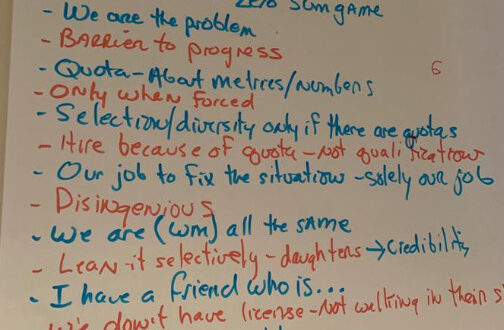 Zero Sum game
- We are the problem
- BARRIER to progress
- Quota - About metrics/numbers
6
- Only when forced
- Selection/diversity only if there are quotas
- Hire because of quota - Not qualification
- Our job to fix the situation - solely our job
- Disingenious
- We are (WM) all the same
- Lean-it selectively - daughters → Credibility
- I have a friend who is...
We don't have license - Not walking in their s